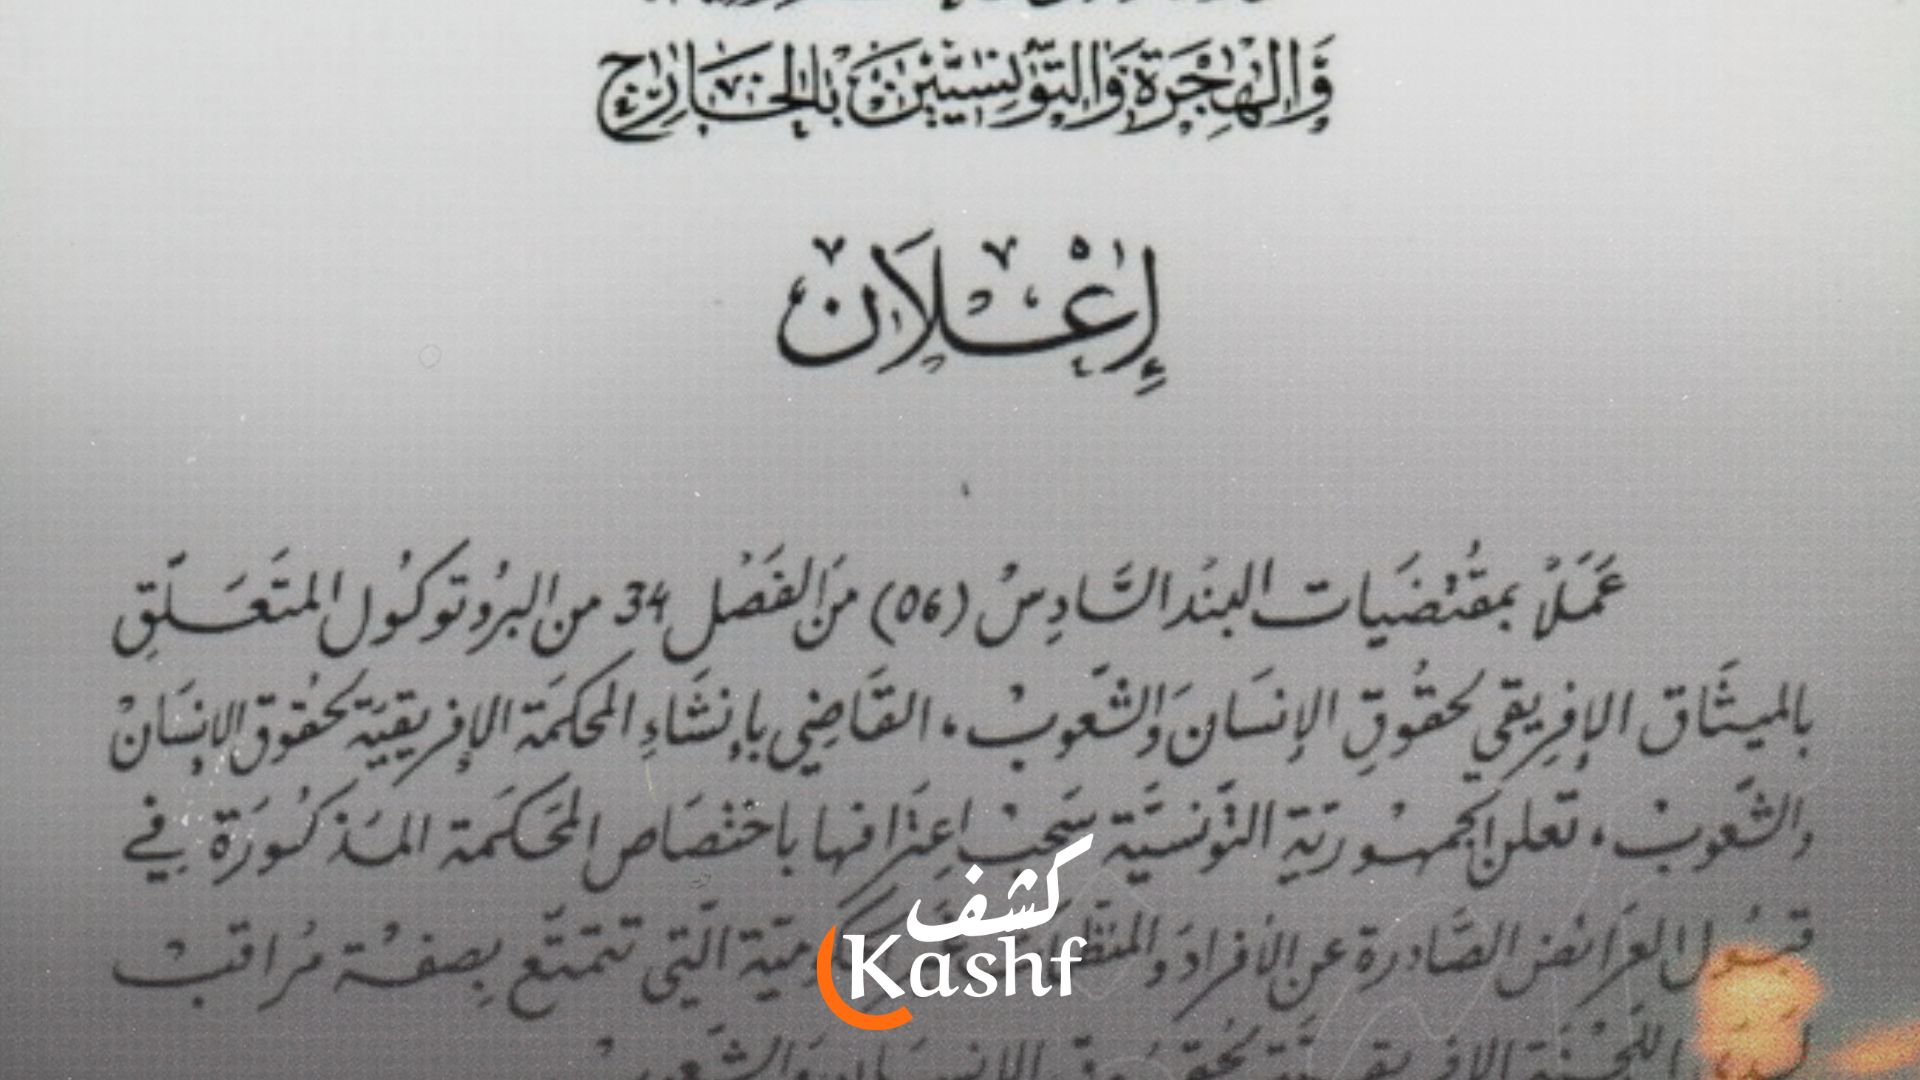 وَالهِجْرَة وَالتّونِسيّين بالخَارِج
إعْلَان
عَمَلاً بمقتضَيات البند السَّادِس (06) من الفَصْل 34 من البروتوكُول المتَعَلّقِ
بالميثَاق الإفِريقي لحقُوقِ الإنسَان وَالشّعوبْ، القَاضِي بإنشَاءِ المحكمَة الإفريقيَة لحقُوق الإنسَانْ
والشّعوبْ، تعلن الجمهوريّة التّونسيَّة سَحبْ اعِترافها باختصَاص المَحكمَة المَذكُورَة فِي
قبُول العرَائض الصَّادرة عن الأفرَاد وَالمنظّمات التي تتمتّع بِصفة مُراقبْ
للّجنة الإفريقيّة لحقوق الإنسَان وَالشّعوبْ
كشف
Kashf